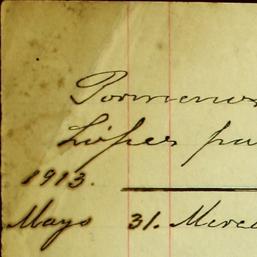 Pormenor
Lópes pa
1913.
Mayo 31. Merca